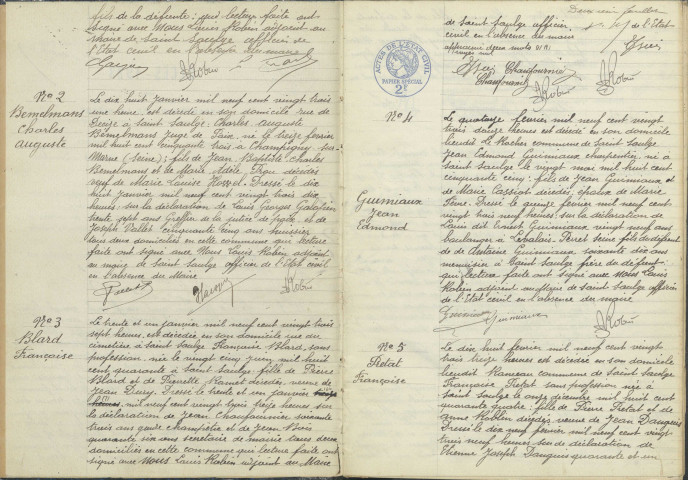 fils de la défunte; qui lecture faite ont
signé avec Nous Louis Robin adjoint au
maire de Saint Saulge officier de
l'Etat civil en l'absence du maire
Robin
No 2
Bemelmans
Charles
Auguste
Le dix huit janvier mil neuf cent vingt trois
une heure, est décédé en son domicile rue de
à Saint Saulge: Charles Auguste
Bemelmans Juge de Paix, né le treize février
mil huit cent cinquante trois à Champigny sur
Marne (Seine); fils de Jean Baptiste Charles
Bemelmans et de Marie Adèle décédés
veuf de Marie Louise. Dressé le dix
huit janvier mil neuf cent vingt trois dix
heures, sur la déclaration de Louis Georges
trente sept ans Greffier de la justice de paix et de
Joseph Ballet cinquante cinq ans huissier
tous deux domiciliés en cette commune qui lecture
faite ont signé avec Nous Louis Robin adjoint
au maire de Saint Saulge officier de l'Etat civil
en l'absence du Maire
Robin
No 3
Blard
Françoise
Le trente et un janvier mil neuf cent vingt trois
sept heures, est décédée, en son domicile rue du
cimetière à Saint Saulge Françoise Blard, sans
profession, née le vingt cinq juin mil huit
cent quarante à Saint Saulge fille de Pierre
Blard et de Pierrette Ramet décédés, veuve de
Jean. Dressé le trente et un janvier
heures mil neuf cent vingt trois treize heures sur
la déclaration de Jean Chaufournier soixante
trois ans garde champêtre et de Jean Bois
quarante six ans secrétaire de mairie tous deux
domiciliés en cette commune qui lecture faite ont
signé avec Nous Louis Robin adjoint au Maire
Deuxième feuillet
de Saint Saulge officier de l'Etat
civil en l'absence du maire
Chaufournier
Robin
ACTES DE L'ETAT CIVIL
PAPIER SPÉCIAL
2F
No 4
Guimiaux
Jean
Edmond
Le quatorze février mil neuf cent vingt
trois douze heures est décédé en son domicile
lieudit commune de Saint Saulge
Jean Edmond Guimiaux charpentier, né à
Saint Saulge le vingt mai mil huit cent
cinquante cinq; fils de Jean Guimiaux et
de Marie Cassiot décédés, époux de Marie
Dressé le quinze février mil neuf cent
vingt trois neuf heures, sur la déclaration de
Louis dit Ernest Guimiaux vingt neuf ans
boulanger à Levallois-Perret Seine fils du défunt
et de Guimiaux, soixante dix ans
à Saint Saulge frère du défunt
qui lecture faite ont signé avec Nous Louis
Robin adjoint au Maire de Saint Saulge officier
de l'Etat civil en l'absence du maire
Guimiaux Guimiaux
Robin
No 5
Pretat
Françoise
Le dix huit février mil neuf cent vingt
trois treize heures est décédée en son domicile
lieudit commune de Saint Saulge
Françoise Pretat sans profession née à
Saint Saulge le onze décembre mil huit cent
quarante quatre, fille de Pierre Pretat et de
Anne décédés veuve de Jean Dangeus
Dressé le dix neuf février mil neuf cent vingt
trois neuf heures sur la déclaration de
Etienne Joseph Dangeus quarante et un